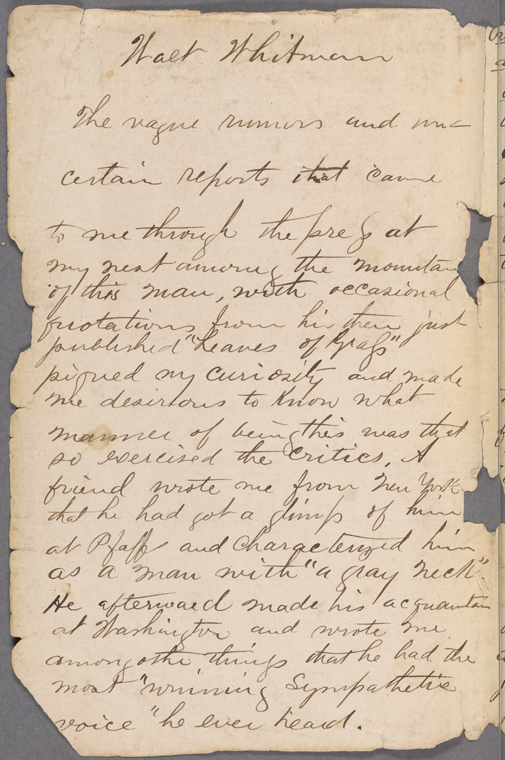 Walt Whitman
The vague rumors and un-
certain reports that came
to me through the press at
my nest among the mountain
of this man, with occasional
quotations from his then just
published "Leaves of Grass"
piqued my curiosity and made
me desirious to know what
manner of being this was that
so exercised the critics. A
friend wrote me from New York
that he had got a glimps of him
at Pfaffs and characterized him
as a man with "a gray neck".
He afterward made his acquaintan
at Washington and wrote me
among othe things that he had the
most "winning sympathetic
voice" he ever heard.